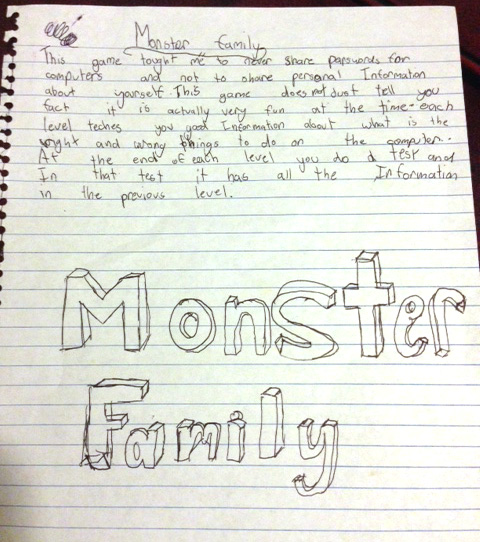 Monster family
This game tought me to never share passwords for
computers and not to share personal Information
about yourself. This game does not Just tell you
fact it is actually very fun at the time. each
level teches you good Information about what is the
wright and wrong things to do on the computer.
At the end of each level you do a test and
In that test it has all the Information
in the previous level.
Monster
Family